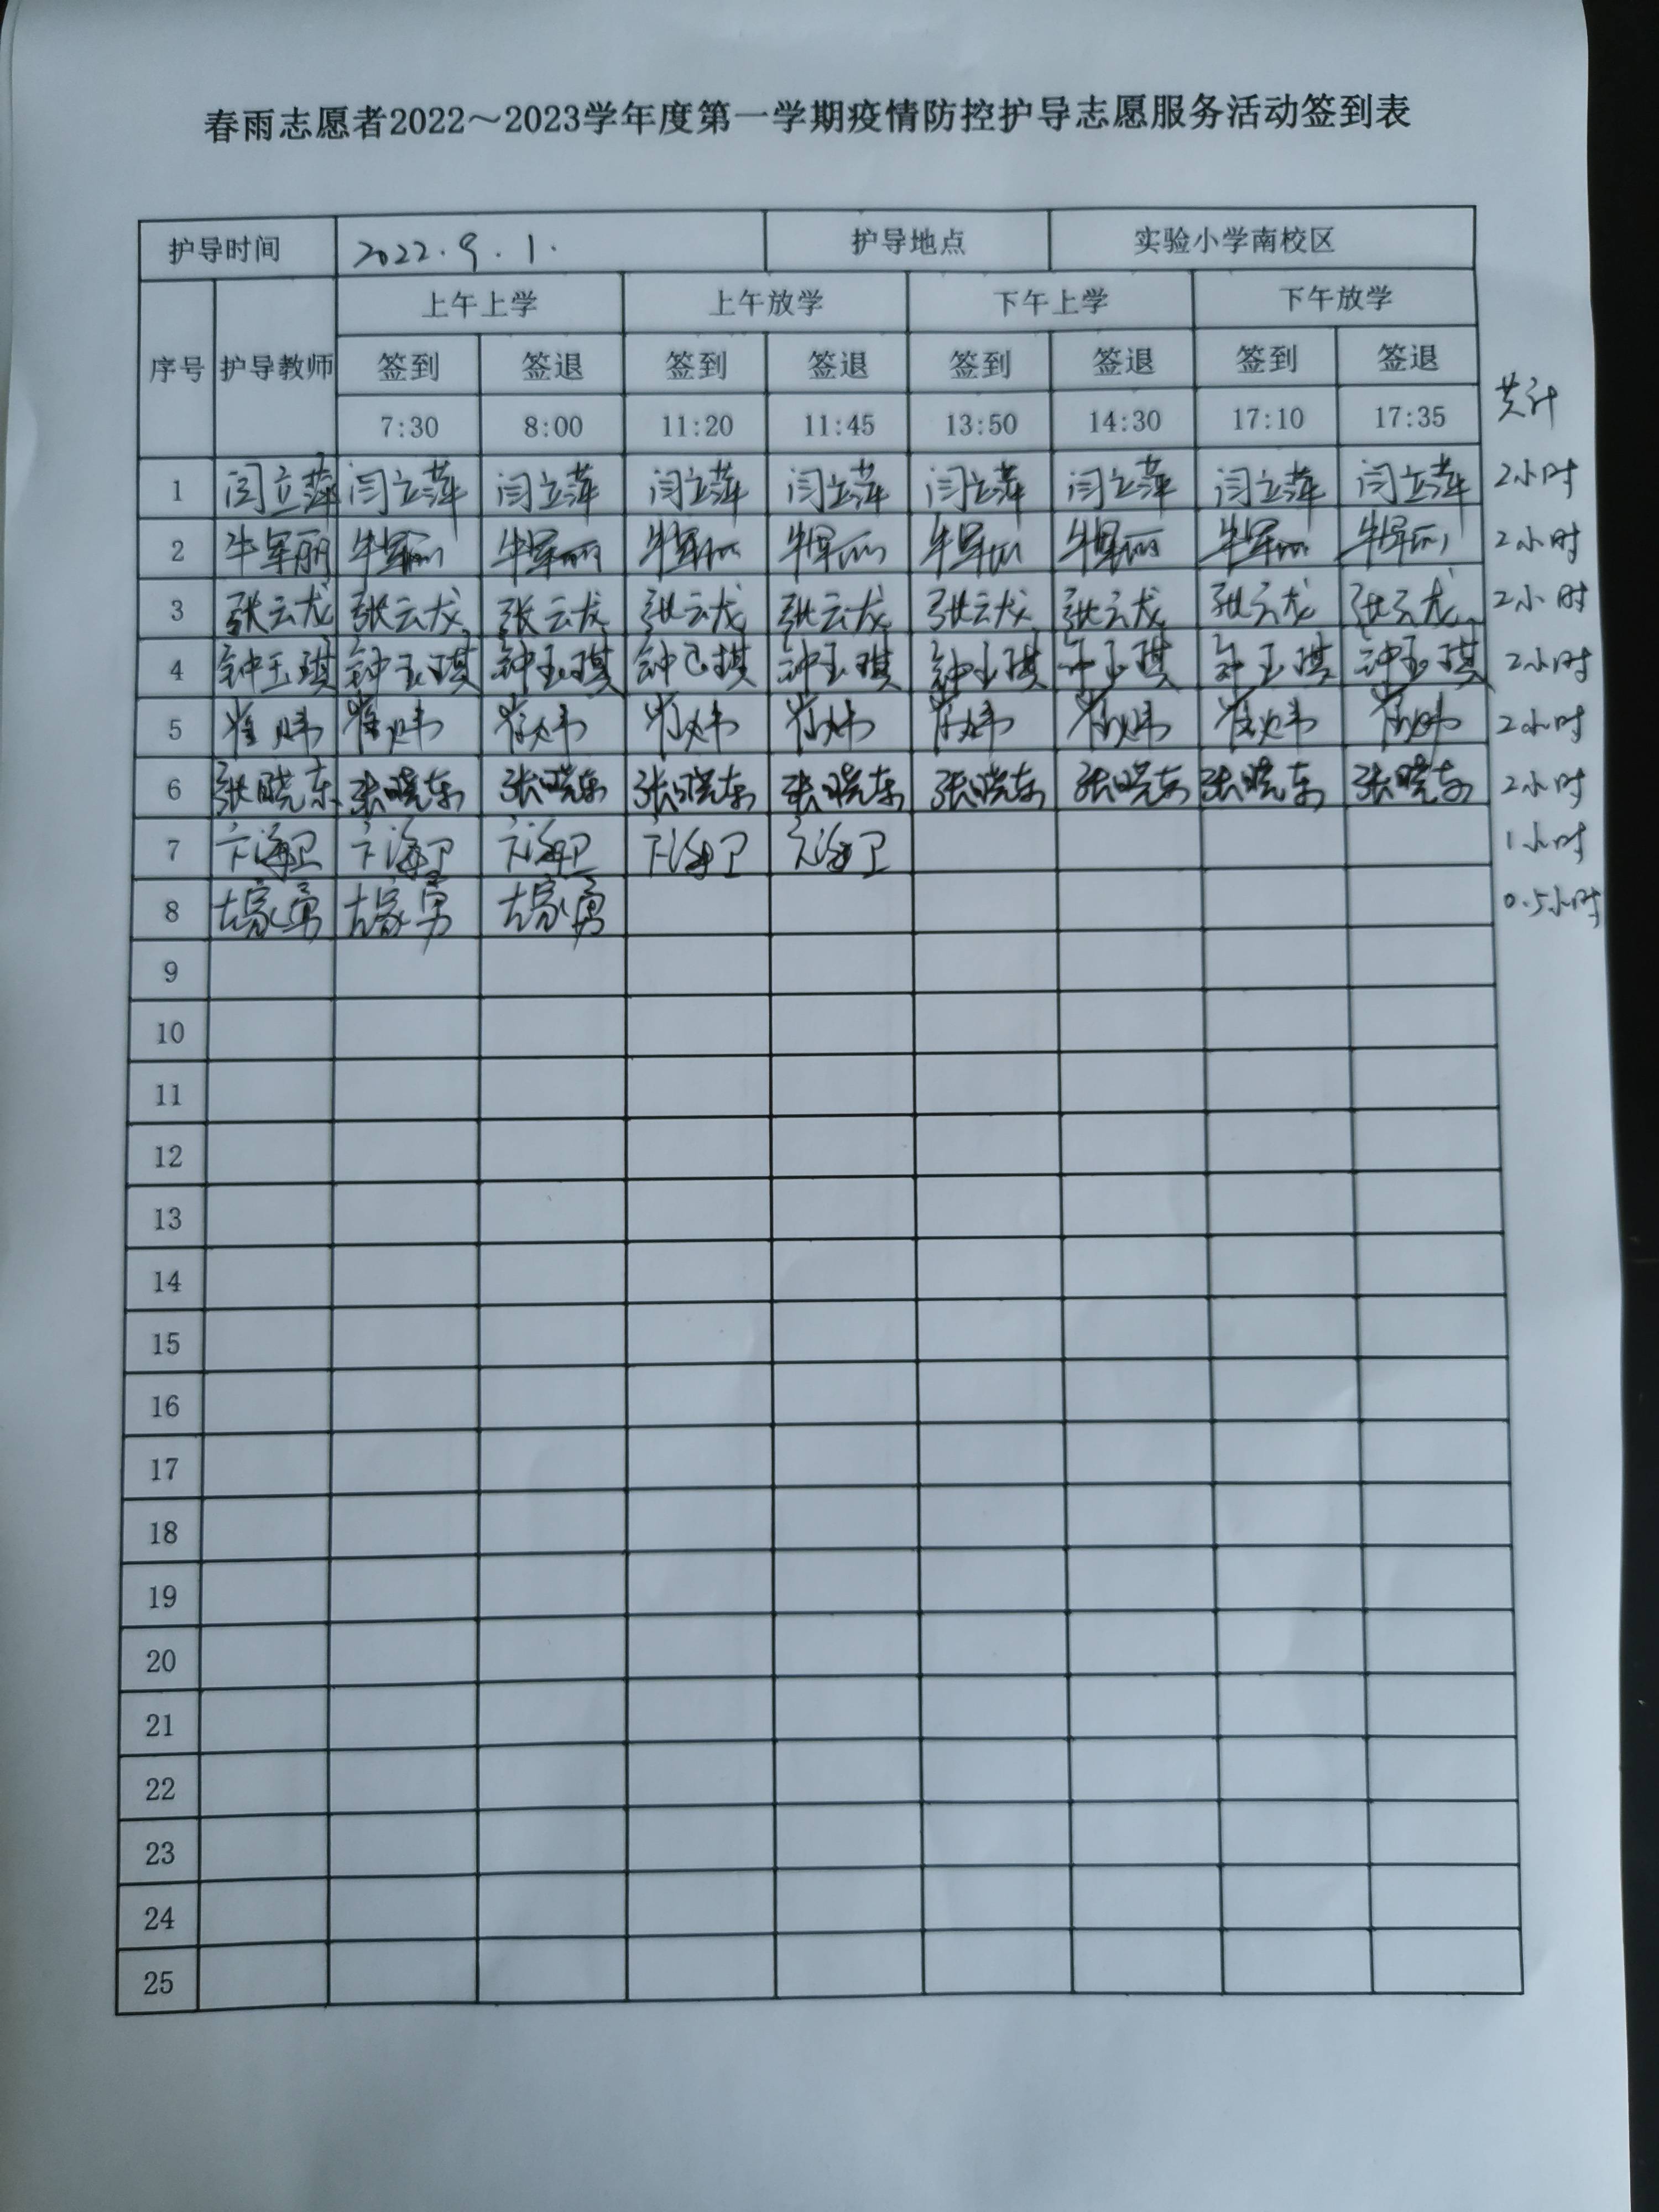 春雨志愿者2022～2023学年度第一学期疫情防控护导志愿服务活动签到表
护导时间 2022.9.1. 护导地点 实验小学南校区
序号 护导教师 上午上学 上午放学 下午上学 下午放学
签到 签退 签到 签退 签到 签退 签到 签退 共计
7:30 8:00 11:20 11:45 13:50 14:30 17:10 17:35
1 闫立萍 闫立萍 闫立萍 闫立萍 闫立萍 闫立萍 闫立萍 闫立萍 闫立萍 2小时
2 牛军丽 牛军丽 牛军丽 牛军丽 牛军丽 牛军丽 牛军丽 牛军丽 牛军丽 2小时
3 张云龙 张云龙 张云龙 张云龙 张云龙 张云龙 张云龙 张云龙 张云龙 2小时
4 钟玉琪 钟玉琪 钟玉琪 钟玉琪 钟玉琪 钟玉琪 钟玉琪 钟玉琪 钟玉琪 2小时
5 崔炜 崔炜 崔炜 崔炜 崔炜 崔炜 崔炜 崔炜 崔炜 2小时
6 张晓东 张晓东 张晓东 张晓东 张晓东 张晓东 张晓东 张晓东 张晓东 2小时
7 卞海卫 卞海卫 卞海卫 卞海卫 卞海卫 1小时
8 家勇 家勇 家勇 0.5小时
9
10
11
12
13
14
15
16
17
18
19
20
21
22
23
24
25